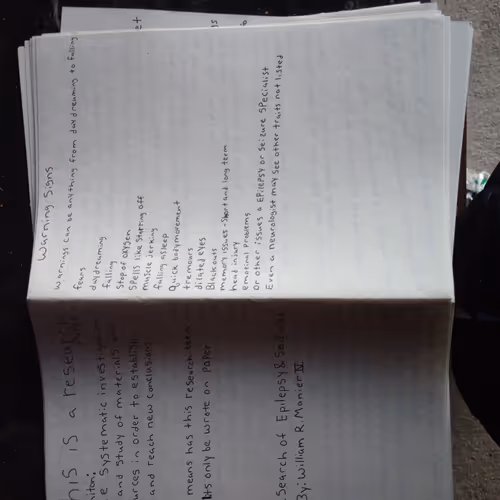 Warning Signs
Warnings can be anything from daydreaming to falling
fears
daydreaming
falling
Stop of oxygen
Spells like starring off
muscle jerking
falling asleep
Quick bodymovement
tremours
dilated eyes
Blackouts
memory issues - Short and long term
head injury
emotional problems
Or other issues a Epilepsy or Seizure Specialist
Even a neurologist may see other traits not listed
his is a resear
e Systematic investiga
and study of materials
urces in order to establis
and reach new conclusions
means has this research
its only be wrote on paper
Search of Epilepsy &
By: William R. Manier IV